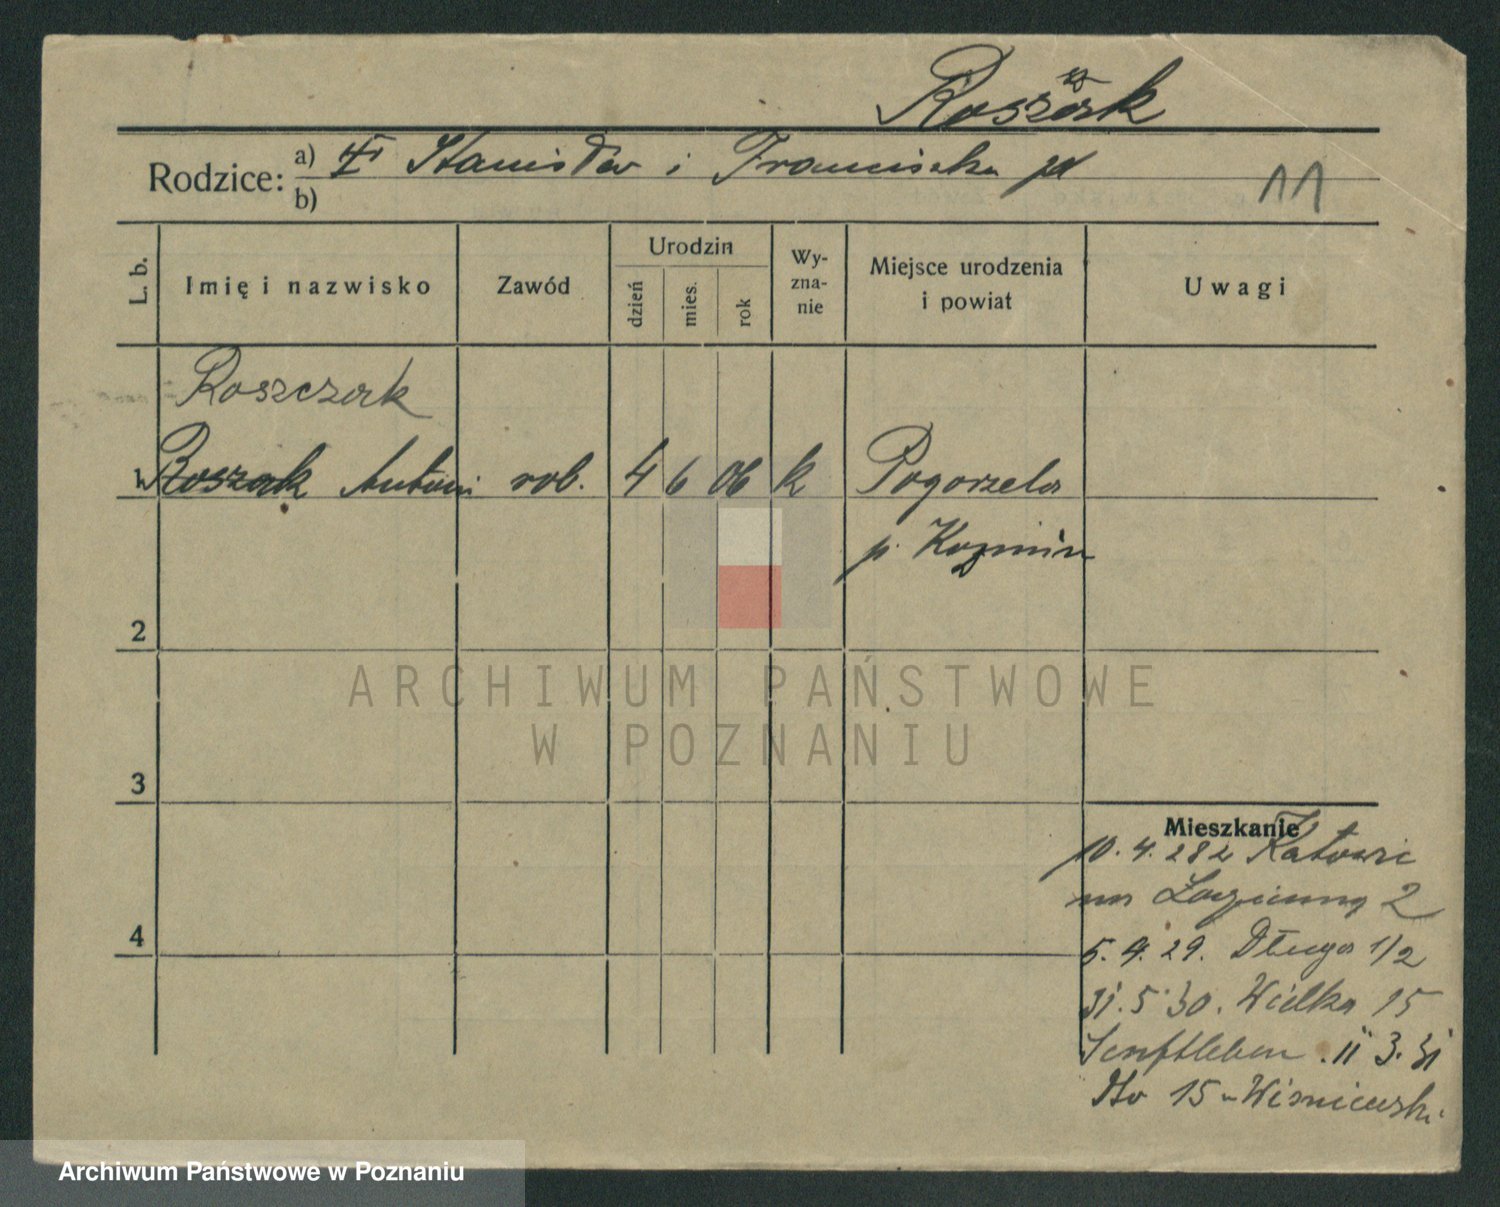 Roszczak
Rodzice: a) Stanisław i Franciszka
b)
11
L. b.
Imię i nazwisko
Zawód
Urodzin
dzień
mies.
rok
Wy-
zna-
nie
Miejsce urodzenia
i powiat
Uwagi
Roszczak
1 Roszak Antoni rob. 4 6 06 k Pogorzela
p. Koźmin
2
3
4
ARCHIWUM PAŃSTWOWE
W POZNANIU
Mieszkanie
10. 4. 28 z
2
5. 4. 29. Długa 1/2
31. 5. 30. Wielka 15
Senftleben. 11 3. 31
Dto 15 - Wiśniewski
Archiwum Państwowe w Poznaniu